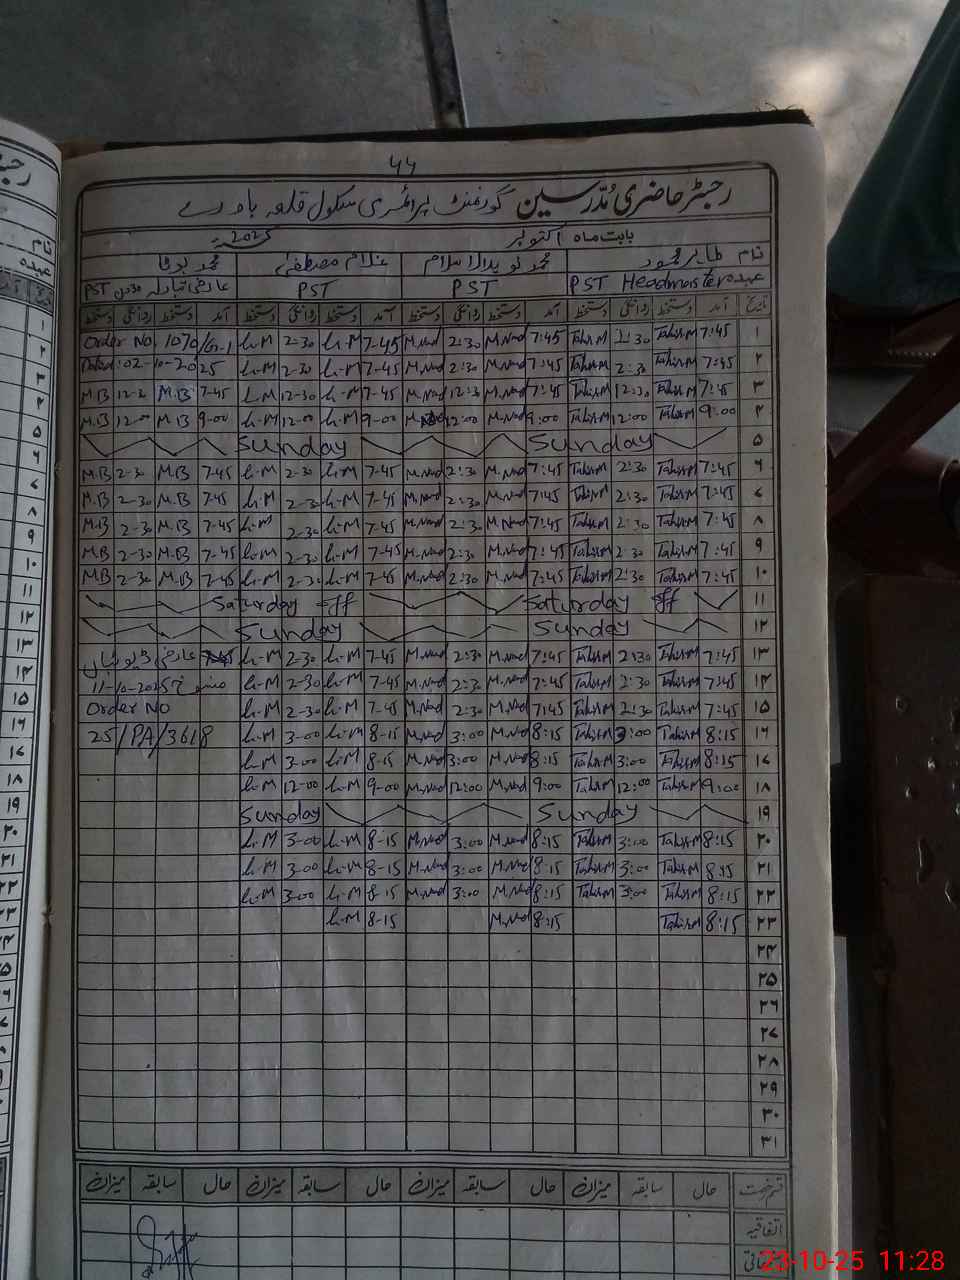 ۴۴
رجسٹر حاضری مُدرّسین گورنمنٹ پرائمری سکول قلعہ
بابت ماہ اکتوبر 2025ء
نام طاہر محمود محمد نوید الاسلام غلام مصطفیٰ محمد بوٹا
عہدہ PST Headmaster PST PST عارضی تبادلہ PST
تاریخ آمد دستخط روانگی دستخط آمد دستخط روانگی دستخط آمد دستخط روانگی دستخط آمد دستخط روانگی دستخط
۱ 7:45 Tahir M 2:30 Tahir M 7:45 M.Nvd 2:30 M.Nvd 7-45 h-M 2-30 h-M Order No. 1070/G-1
۲ 7:45 Tahir M 2:30 Tahir M 7:45 M.Nvd 2:30 M.Nvd 7-45 h-M 2-30 h-M Dated: 02-10-2025
۳ 7:45 Tahir M 12:30 Tahir M 7:45 M.Nvd 12:30 M.Nvd 7-45 h-M 12-30 h-M 7-45 M.B M.B
۴ 9:00 Tahir M 12:00 Tahir M 9:00 M.Nvd 12:00 M.Nvd 9-00 h-M 12-00 h-M 9-00 M.B 12-00 M.B
۵ Sunday Sunday
۶ 7:45 Tahir M 2:30 Tahir M 7:45 M.Nvd 2:30 M.Nvd 7-45 h-M 2-30 h-M 7-45 M.B 2-30 M.B
۷ 7:45 Tahir M 2:30 Tahir M 7:45 M.Nvd 2:30 M.Nvd 7-45 h-M 2-30 h-M 7-45 M.B 2-30 M.B
۸ 7:45 Tahir M 2:30 Tahir M 7:45 M.Nvd 2:30 M.Nvd 7-45 h-M 2-30 h-M 7-45 M.B 2-30 M.B
۹ 7:45 Tahir M 2:30 Tahir M 7:45 M.Nvd 2:30 M.Nvd 7-45 h-M 2-30 h-M 7-45 M.B 2-30 M.B
۱۰ 7:45 Tahir M 2:30 Tahir M 7:45 M.Nvd 2:30 M.Nvd 7-45 h-M 2-30 h-M 7-45 M.B 2-30 M.B
۱۱ Saturday off Saturday off
۱۲ Sunday Sunday
۱۳ 7:45 Tahir M 2:30 Tahir M 7:45 M.Nvd 2:30 M.Nvd 7-45 h-M 2-30 h-M عارضی ڈیوٹیاں
۱۴ 7:45 Tahir M 2:30 Tahir M 7:45 M.Nvd 2:30 M.Nvd 7-45 h-M 2-30 h-M منسوخ 11-10-2025
۱۵ 7:45 Tahir M 2:30 Tahir M 7:45 M.Nvd 2:30 M.Nvd 7-45 h-M 2-30 h-M Order NO
۱۶ 8:15 Tahir M 3:00 Tahir M 8:15 M.Nvd 3:00 M.Nvd 8-15 h-M 3-00 h-M 25/PA/3618
۱۷ 8:15 Tahir M 3:00 Tahir M 8:15 M.Nvd 3:00 M.Nvd 8-15 h-M 3-00 h-M
۱۸ 9:00 Tahir M 12:00 Tahir M 9:00 M.Nvd 12:00 M.Nvd 9-00 h-M 12-00 h-M
۱۹ Sunday Sunday
۲۰ 8:15 Tahir M 3:00 Tahir M 8:15 M.Nvd 3:00 M.Nvd 8-15 h-M 3-00 h-M
۲۱ 8:15 Tahir M 3:00 Tahir M 8:15 M.Nvd 3:00 M.Nvd 8-15 h-M 3-00 h-M
۲۲ 8:15 Tahir M 3:00 Tahir M 8:15 M.Nvd 3:00 M.Nvd 8-15 h-M 3-00 h-M
۲۳ 8:15 Tahir M 8:15 M.Nvd 8-15 h-M
۲۴
۲۵
۲۶
۲۷
۲۸
۲۹
۳۰
۳۱
قسم رخصت حال سابقہ میزان حال سابقہ میزان حال سابقہ میزان حال سابقہ میزان
اتفاقیہ
23-10-25 11:28